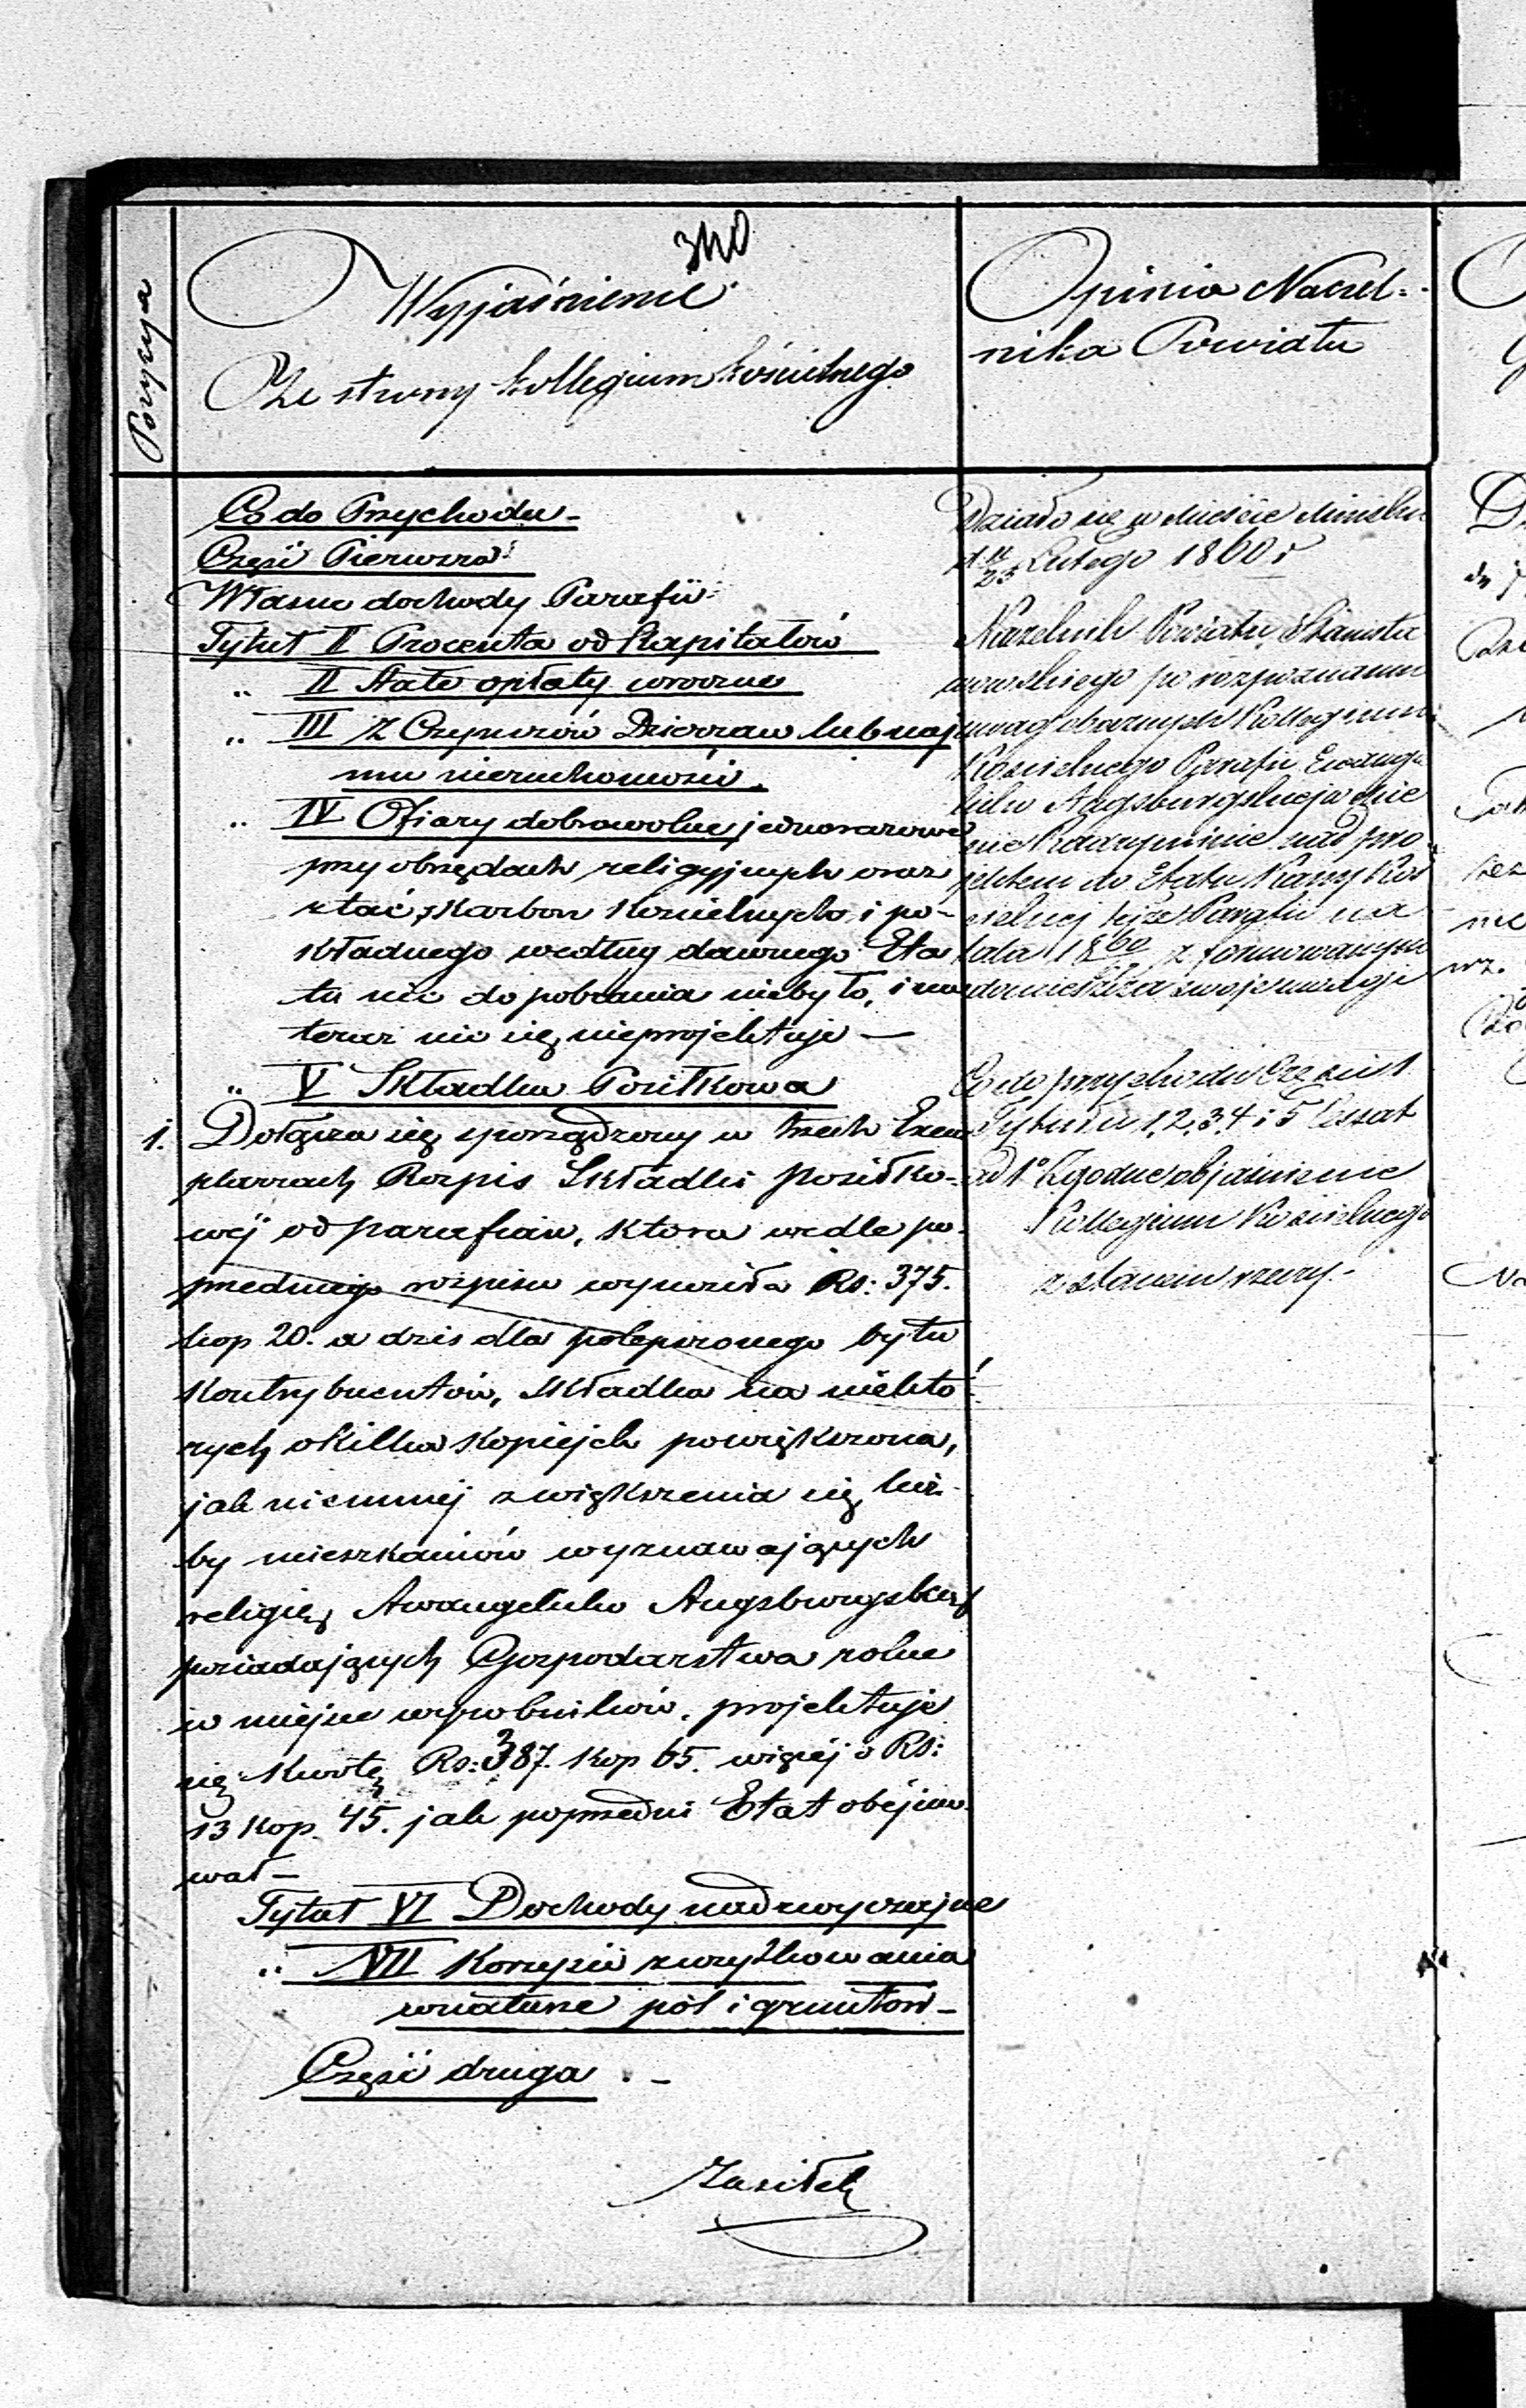 340
Pozycya
Wyjaśnienie
Ze strony Kollegium Kościelnego
Co do Przychodu -
Część Pierwsza
Własne dochody Parafii
Tytuł II Procenta od Kapitałów
" II Stałe opłaty coroczne
" III Z Czynszów Dzierzaw lub naj
mu nieruchomości.
" IV Ofiary dobrowolne jednorazowe
przy obrzędach religijnych oraz
z tac, skarbon Kościelnych i po-
kładnego według dawnego Eta
tu nic do pobrania niebyło, i na
teraz nic się nieprojektuje —
" V Składka Posiłkowa
1. Dołącza się sporządzony w trzech Exem
plarzach Rozpis Składki posiłko-
wéj od parafian, która wedle po-
przedniego rozpisu wynosiła Rs: 375.
kop 20. a dzis dla polepszonego bytu
kontrybuentów, składka na niektó
rych o kilka kopiejek powiększona,
jak niemniej zwiększenia się licz-
by mieszkańców wyznawających
religię Awangelicko Augsburgską
posiadających Gospodarstwa rolne
w miejsce wyrobników, projektuje
się kwotę Rs: 387. kop 65. więcéj o Rs:
13 kop. 45. jak poprzedni Etat obéjmo-
wał —
Tytuł VI Dochody nadzwyczajne
" VII Korzyści z użytkowania
w naturze pól i gruntów -
Część druga . -
Zasiłek
Opinia Naczel-
nika Powiatu
Działo się w Mieście Mińsku
d. 11/23 Lutego 1860 r
Naczelnik Powiatu Stanisła
wowskiego po rozpoznaniu
uwag obocznych Kollegium
Kościelnego Parafii Ewange
licko Augsburgskiej w
nad pro-
jektem do Etatu Kassy Koś
cielnej tejże Parafii na
lata 1860 z formowanym
zamieszcza swoje uwagi
Co do przychodu Część 1
Tytułu 1, 2, 3, 4 i 5
ad 1° Zgodne objaśnienie
Kollegium Kościelnego
z stanem rzeczy. -